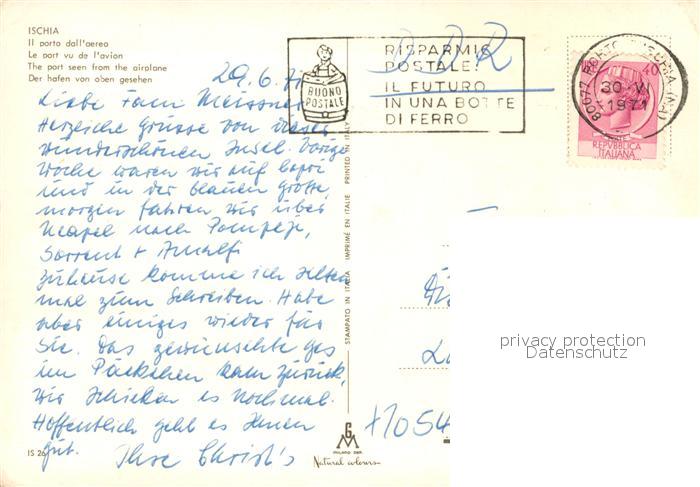 ISCHIA
Il porto dall'aereo
Le port vu de l'avion
The port seen from the airplane
Der hafen von oben gesehen
29.6.71
Liebe Fam Meissner
Herzliche Grüsse von dieser
wunderschönen Insel. Vorige
Woche waren wir auf Capri
und in der blauen Grotte,
morgen fahren wir über
Neapel nach Pompeji,
Sorrent + Amalfi
Zuhause komme ich selten
mal zum Schreiben. Habe
aber einiges wieder für
Sie. Das gewünschte ges
im Päckchen kam zurück,
wir schicken es nochmal.
Hoffentlich geht es Ihnen
gut. Ihre Christ's
IS 26
STAMPATO IN ITALIA IMPRIMÉ EN ITALIE PRINTED IN ITALY
DDR
BUONO
POSTALE
RISPARMIO
POSTALE:
IL FUTURO
IN UNA BOTTE
DI FERRO
80077 PORTO D'ISCHIA (NA)
30-VI
1971
40
POSTE
REPVBBLICA
ITALIANA
privacy protection
Datenschutz
x7054
MILANO
Natural colours